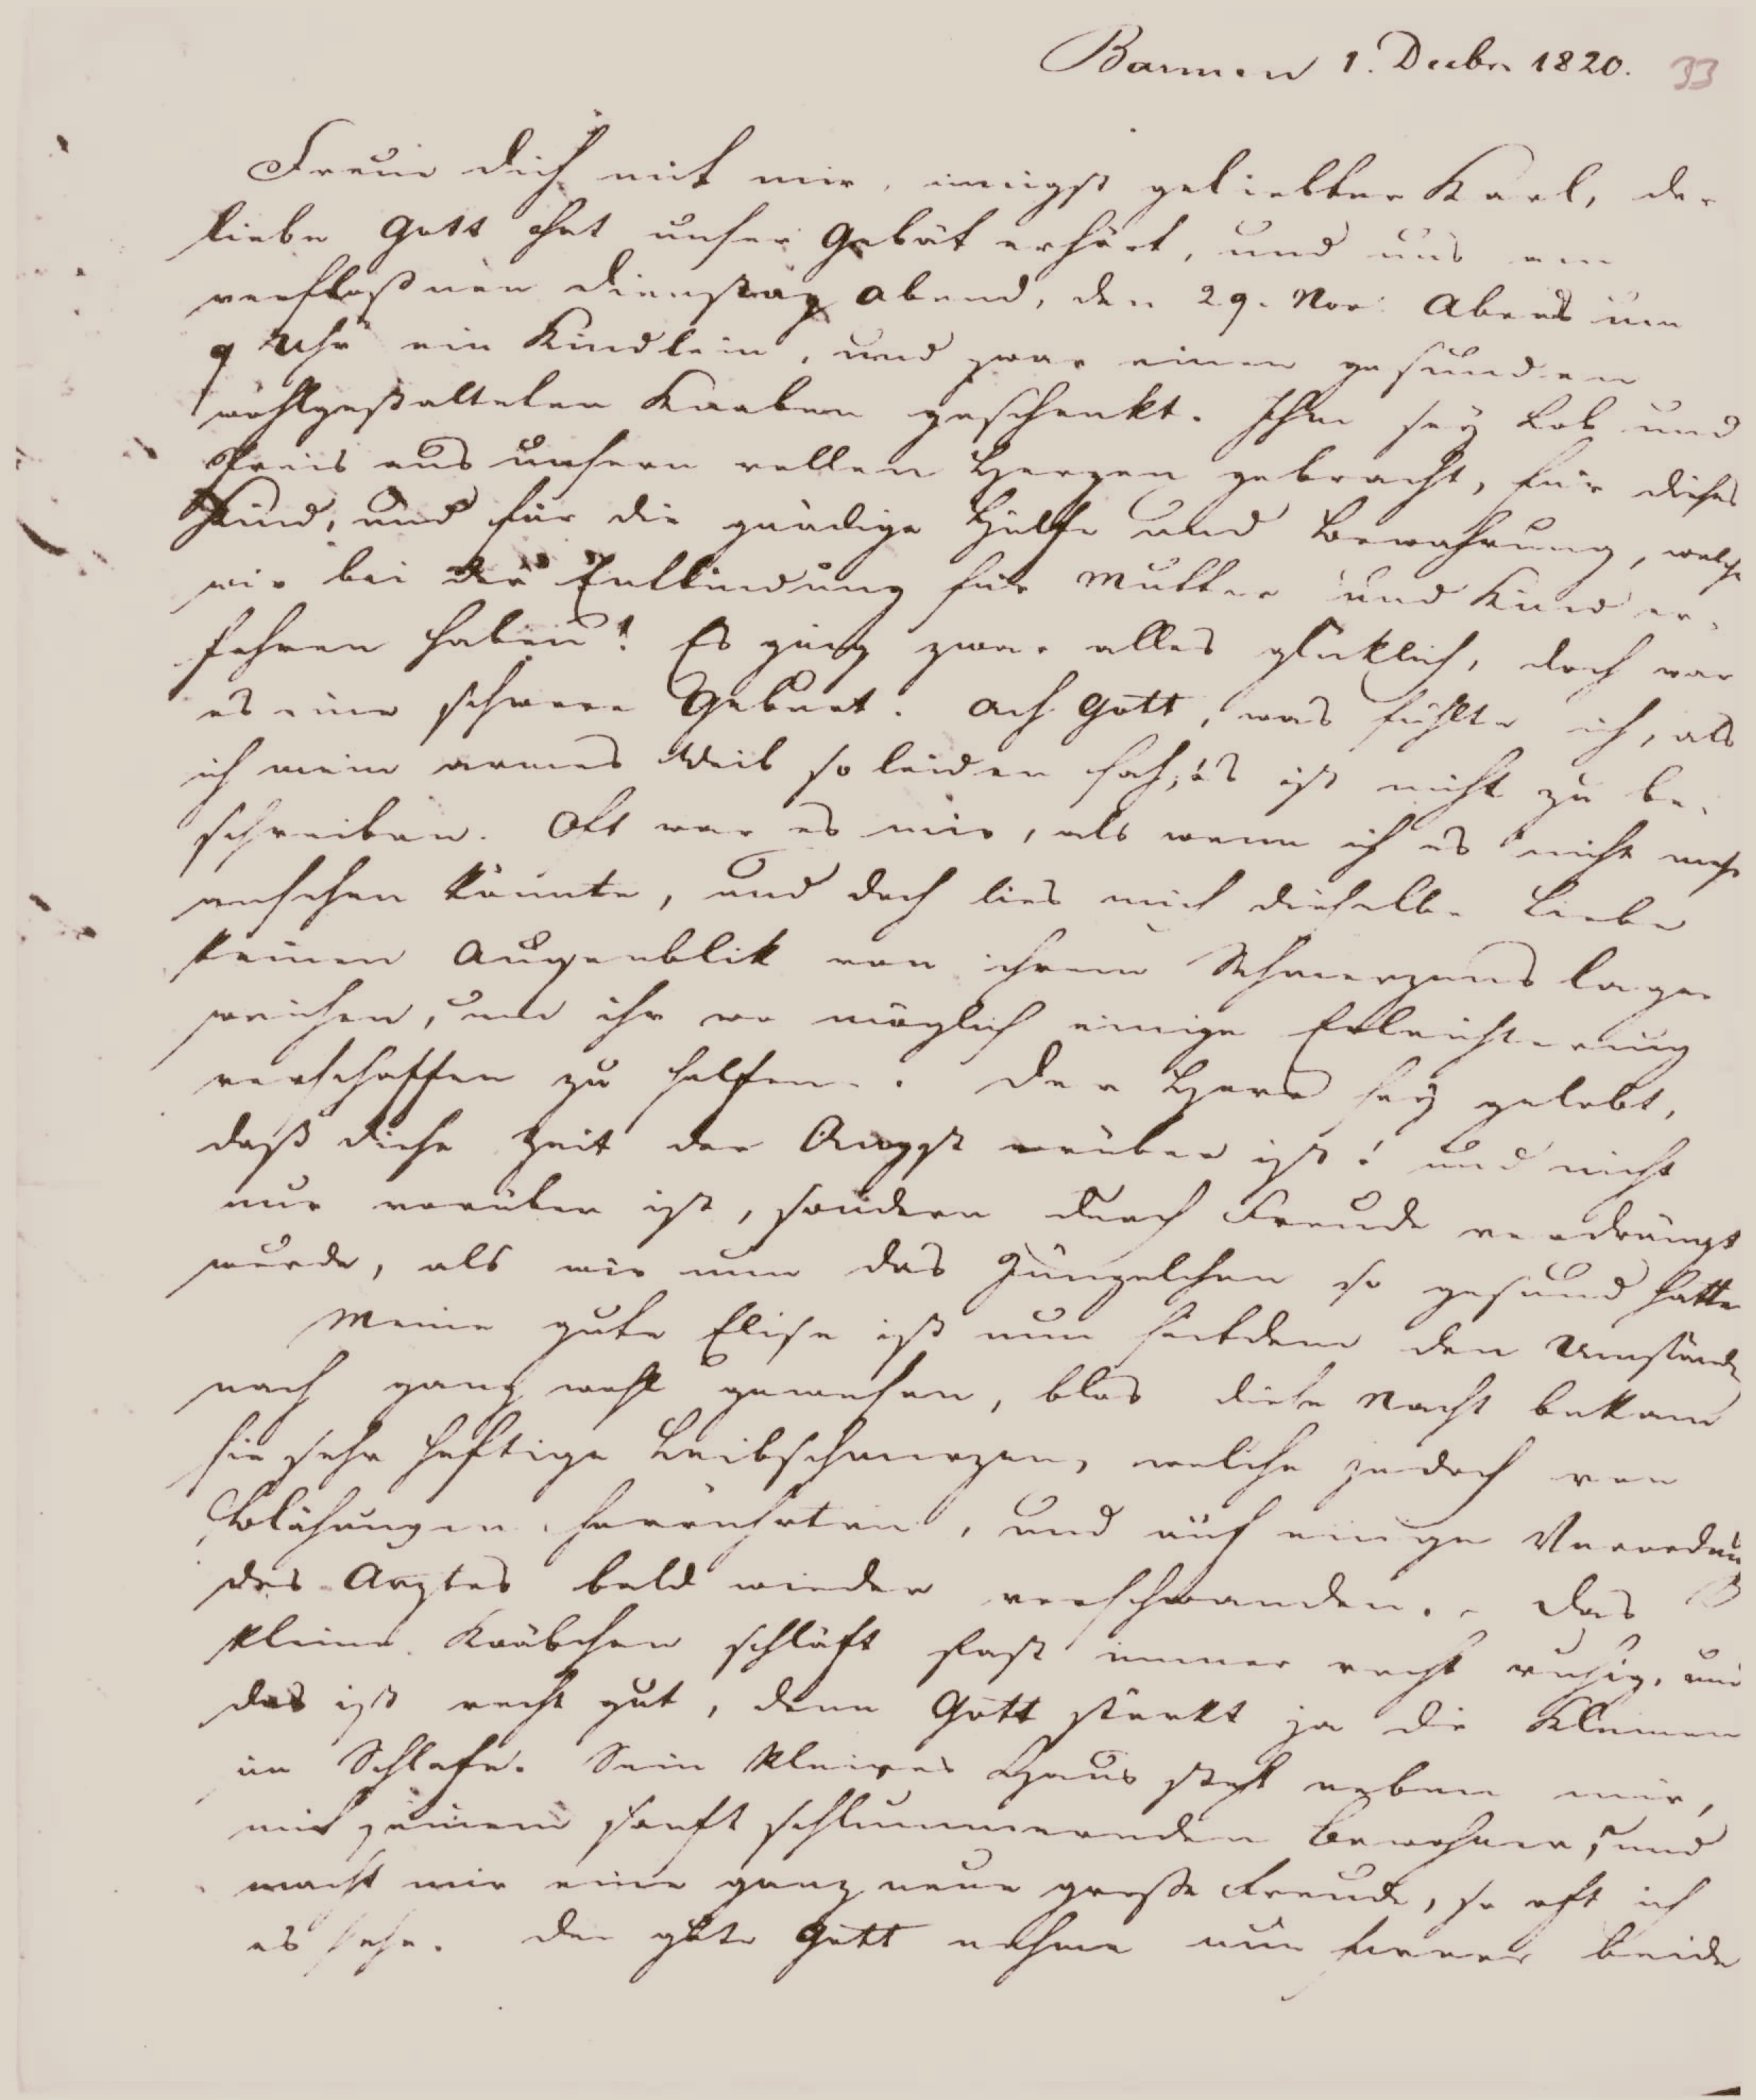 Barmen 1. Decbr. 1820. 33
Freue dich mit mir, innigst geliebter Karl, der
liebe Gott hat unser Gebät erhört, und uns am
verfloßnen Dienstag Abend, den 29. Nov. Abends um
9 Uhr ein Kindlein, und zwar einen gesunden
wohlgestalteten Knaben geschenkt. Ihm sey Lob und
Preis aus unsern vollen Herzen gebracht, für dieses
Kind, und für die gnädige Hülfe und Bewahrung, welche
wir bei der Entbindung für Mutter und Kind er-
fahren haben! Es ging zwar alles glücklich, doch war
es eine schwere Geburt. Ach Gott, was fühlte ich, als
ich mein armes Weib so leiden sah, es ist nicht zu be-
schreiben. Oft war es mir, als wenn ich es nicht mehr
ansehen könnte, und doch lies mich dieselbe Liebe
keinen Augenblik von ihrem Schmerzens lager
weichen, um ihr wo möglich einige Erleichterung
verschaffen zu helfen. Der Herr sey gelobt,
daß diese Zeit der Angst vorüber ist! und nicht
nur vorüber ist, sondern durch Freude verdrängt
wurde, als wir nun das Jüngelchen so gesund hatten
Meine gute Elise ist nun seitdem den Umständen
nach ganz wohl gewesen, blos diese Nacht bekam
sie sehr heftige Leibschmerzen, welche jedoch von
Blähungen herrührten, und auf einige Verordnung
des Arztes bald wieder verschwanden. - Das
kleine Knäbchen schläft fast immer recht ruhig, und
das ist recht gut, denn Gott stärkt ja die Kleinen
im Schlafe. Sein kleines Haus steht neben mir,
mit seinem sanft schlummernden Bewohner, und
macht mir eine ganz neue große Freude, so oft ich
es sehe. Der gute Gott nehme nun ferner beide